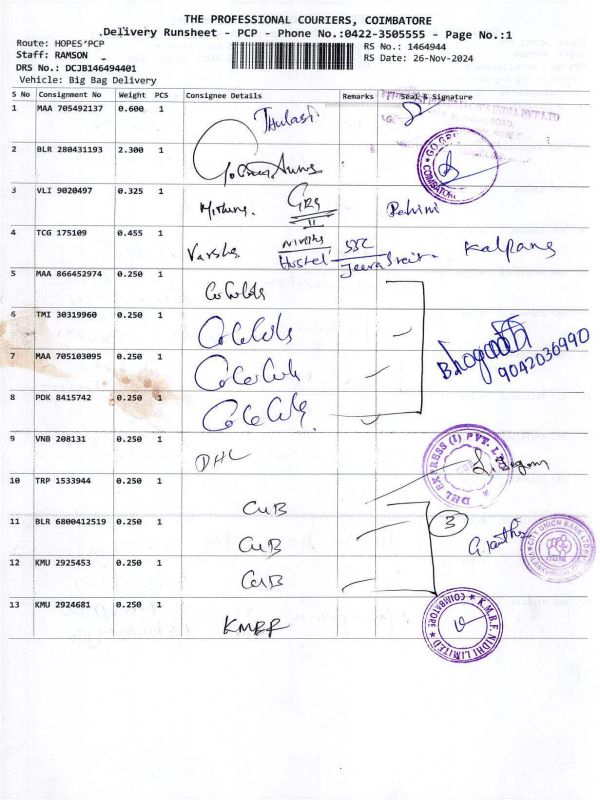 THE PROFESSIONAL COURIERS, COIMBATORE
Delivery Runsheet - PCP - Phone No.:0422-3505555 - Page No.:1
Route: HOPES'PCP
RS No.: 1464944
Staff: RAMSON
RS Date: 26-Nov-2024
DRS No.: DCJB146494401
Vehicle: Big Bag Delivery
S No Consignment No Weight PCS Consignee Details Remarks Seal & Signature
1 MAA 705492137 0.600 1 Thulasi
2 BLR 280431193 2.300 1
COIMBATORE
3 VLI 9020497 0.325 1 GRG
4 TCG 175109 0.455 1 Varsha Hostel Kalpana
5 MAA 866452974 0.250 1
6 TMI 30319960 0.250 1
7 MAA 705103095 0.250 1
9042036990
8 PDK 8415742 0.250 1
9 VNB 208131 0.250 1 DHL
DHL EXPRESS (I) PVT. LTD
10 TRP 1533944 0.250 1 CUB
11 BLR 6800412519 0.250 1 CUB 3
CITY UNION BANK LTD
12 KMU 2925453 0.250 1 CUB
13 KMU 2924681 0.250 1 KMBF
K.M.B.F. NIDHI LIMITED
COIMBATORE